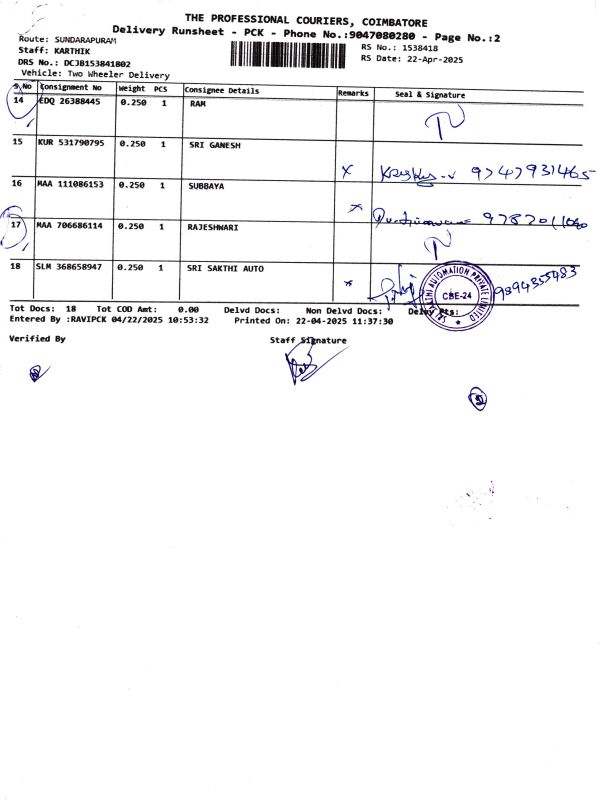 THE PROFESSIONAL COURIERS, COIMBATORE
Delivery Runsheet - PCK - Phone No.:9047080280 - Page No.:2
Route: SUNDARAPURAM
RS No.: 1538418
Staff: KARTHIK
RS Date: 22-Apr-2025
DRS No.: DCJB153841802
Vehicle: Two Wheeler Delivery
S No Consignment No Weight PCS Consignee Details Remarks Seal & Signature
14 EDQ 26388445 0.250 1 RAM
15 KUR 531790795 0.250 1 SRI GANESH
x 9747931465
16 MAA 111086153 0.250 1 SUBBAYA
x
17 MAA 706686114 0.250 1 RAJESHWARI
18 SLM 368658947 0.250 1 SRI SAKTHI AUTO
x SRI SAKTHI AUTOMATION PRIVATE LIMITED CBE-24 9894355483
Tot Docs: 18 Tot COD Amt: 0.00 Delvd Docs: Non Delvd Docs: Delay Pts:
Entered By :RAVIPCK 04/22/2025 10:53:32 Printed On: 22-04-2025 11:37:30
Verified By Staff Signature